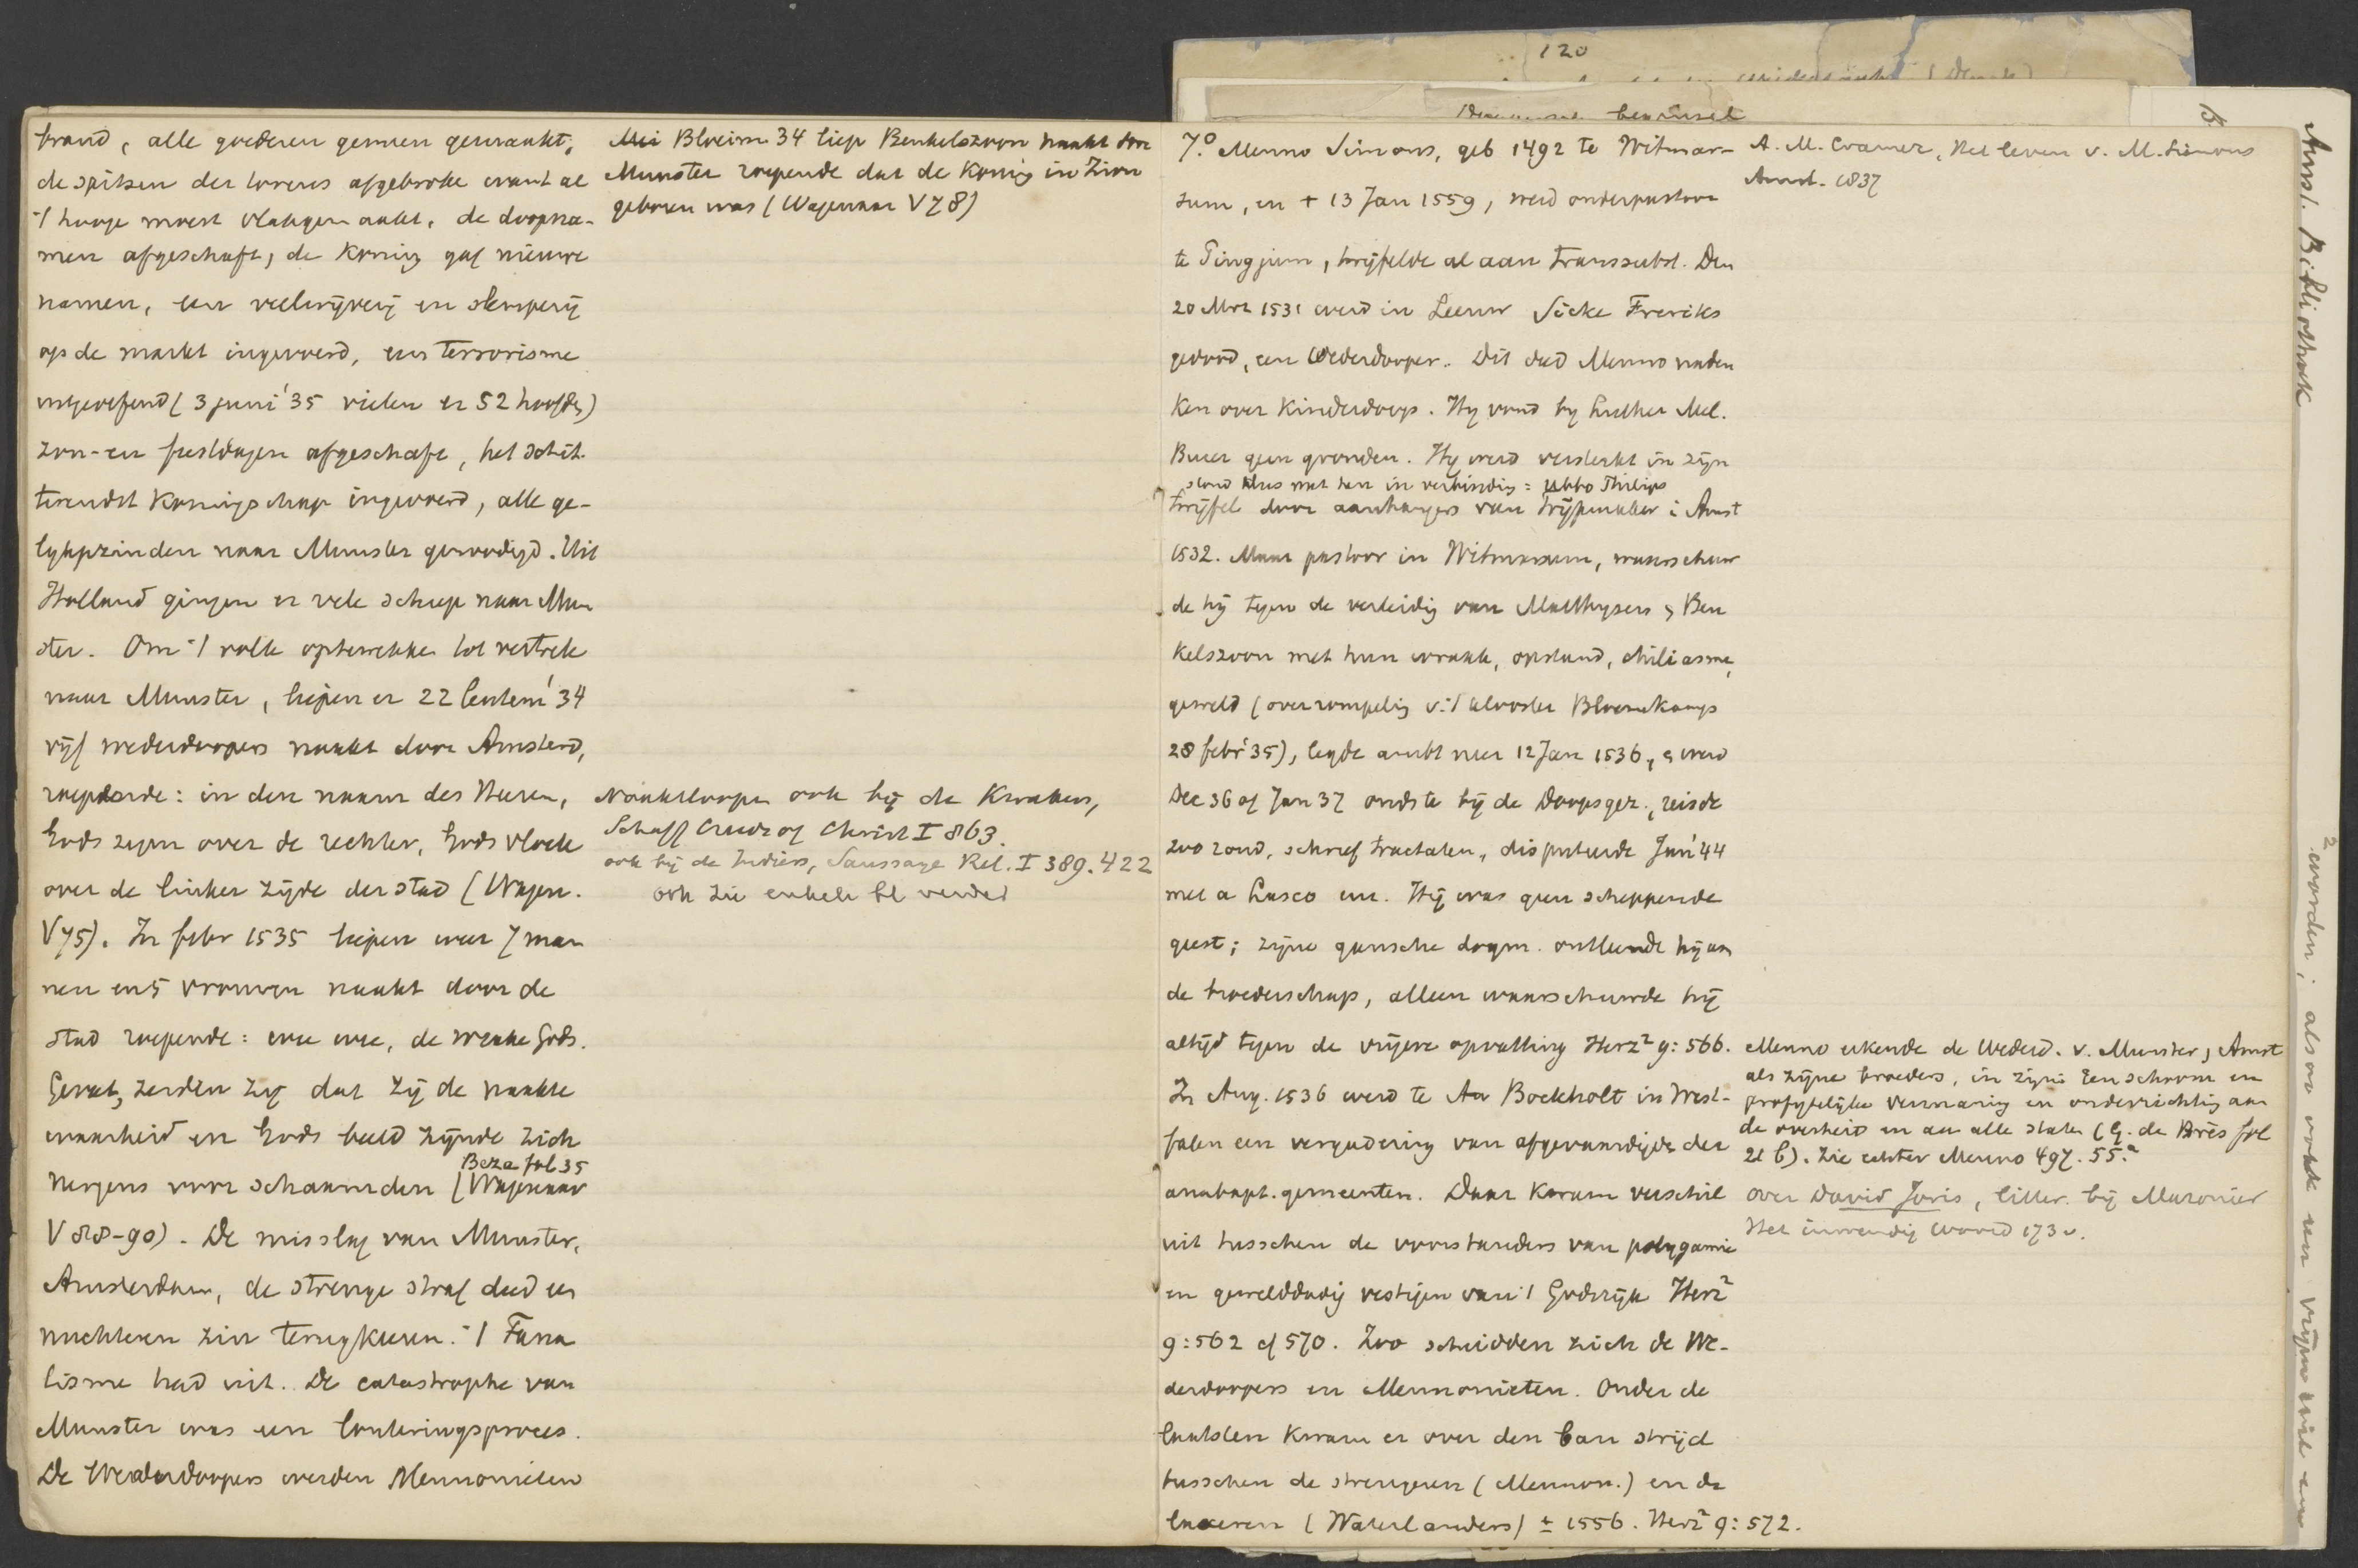 brand, alle goederen gemeen gemaakt,
de spitsen der torens afgebroke want al
't hooge moest vlakgemaakt, de doopna-
men afgeschaft, de Koning gaf nieuwe
namen, een veelwijverij en slemperij
op de markt ingevoerd, een terrorisme
uitgeoefend (3 juni '35 vielen er 52 hoofdn)
zon- en feestdagen afgeschaft, het schit-
terendst Koningschap ingevoerd, alle ge-
lykgezinden naar Munster genoodigd. Uit
Holland gingen er vele schepe naar Mun
ster. Om 't volk optewekke tot vertrek
naar Munster, liepen er 22 Lentem '34
vijf wederdoopers naakt door Amsterd,
roepende: in den naam des Heeren,
Gods zegen over de rechter, Gods vloek
over de linker zijde der stad (Wagen.
V 75). In febr 1535 liepen weer 7 man
nen en 5 vrouwen naakt door de
stad roepende: wee wee, de wrake Gods.
Gevat, zeiden zij dat zij de naakte
waarheid en Gods beeld zijnde zich
Beza fol 35
nergens voor schaamden (Wagenaar
V 88-90). De misslag van Munster,
Amsterdam, de strenge straf deed een
nuchteren zin terugkeeren. 't Fana
tisme had uit. De catastrophe van
Munster was een louteringsproces.
De Wederdoopers werden Mennonieten
Mei Bloeim 34 liep Benkelszoon naakt door
Munster roepende dat de Koning in Zion
geboren was (Wagenaar V 78)
Naaktloopen ook bij de Kwakers,
Schaff Creeds of Christ I 863.
ook bij de Indiërs, Saussaye Rel. I 389. 422
ook zie enkele bl verder
120
7.º Menno Simons, geb 1492 te Witmar-
sum, en † 13 Jan 1559, werd onderpastoor
te Pingjum, twijfelde al aan transsubst. Den
20 Mrt 1531 werd in Leeuw Sicke Freriks
gedood, een Wederdooper. Dit deed Menno naden
ken over Kinderdoop. Hy vond by Luther Mel.
Bucer geen gronden. Hy werd versterkt in zijn
stond dus met hen in verbinding: Ubbo Philips
twijfel door aanhangers van Trijpmaker i Amst
1532. Maar pastoor in Witmarsum, waarschuw
de hij tegen de verleidig van Matthysen, Ben
kelszoon met hun wraak, opstand, chiliasme,
geweld (overrompeling v. 't klooster Bloemkamp
28 febr '35), legde ambt neer 12 Jan 1536, werd
Dec 36 of Jan 37 oudste bij de Doopsgez., reisde
zoo rond, schreef tractaten, disputeerde Jan '44
met a Lasco enz. Hij was geen scheppende
geest; zijne gansche dogm. ontleende hij aan
de broederschap, alleen waarschuwde hij
altijd tegen de vrijere opvatting Herz² 9: 566.
In Aug. 1536 werd te Aa Bockholt in West-
falen een vergadering van afgevaardigde der
anabapt. gemeenten. Daar Kwam verschil
uit tusschen de voorstanders van polygamie
en gewelddadig vestigen van 't Godsrijk Herz²
9: 562 cf 570. Zoo scheidden zich de We-
derdoopers en Mennonieten. Onder de
laatsten Kwam er over den ban strijd
tusschen de strengeren (Mennon.) en de
lakseren (Waterlanders) ± 1556. Herz² 9: 572.
A. M. Cramer, Het leven v. M. Simons
Amst. 1837
Menno erkende de Wederd. v. Munster, Amst
als zijne broeders, in zijne
vermaning en onderrichting aan
de overheid en aan alle staten (G. de Brès fol
21 b). Zie echter Menno 497. 55.ª
over David Joris, litter. bij Maronier
Het inwendig woord 173 v.
Amst. Bibliotheek
worden; alsoo ook een vrijen wil